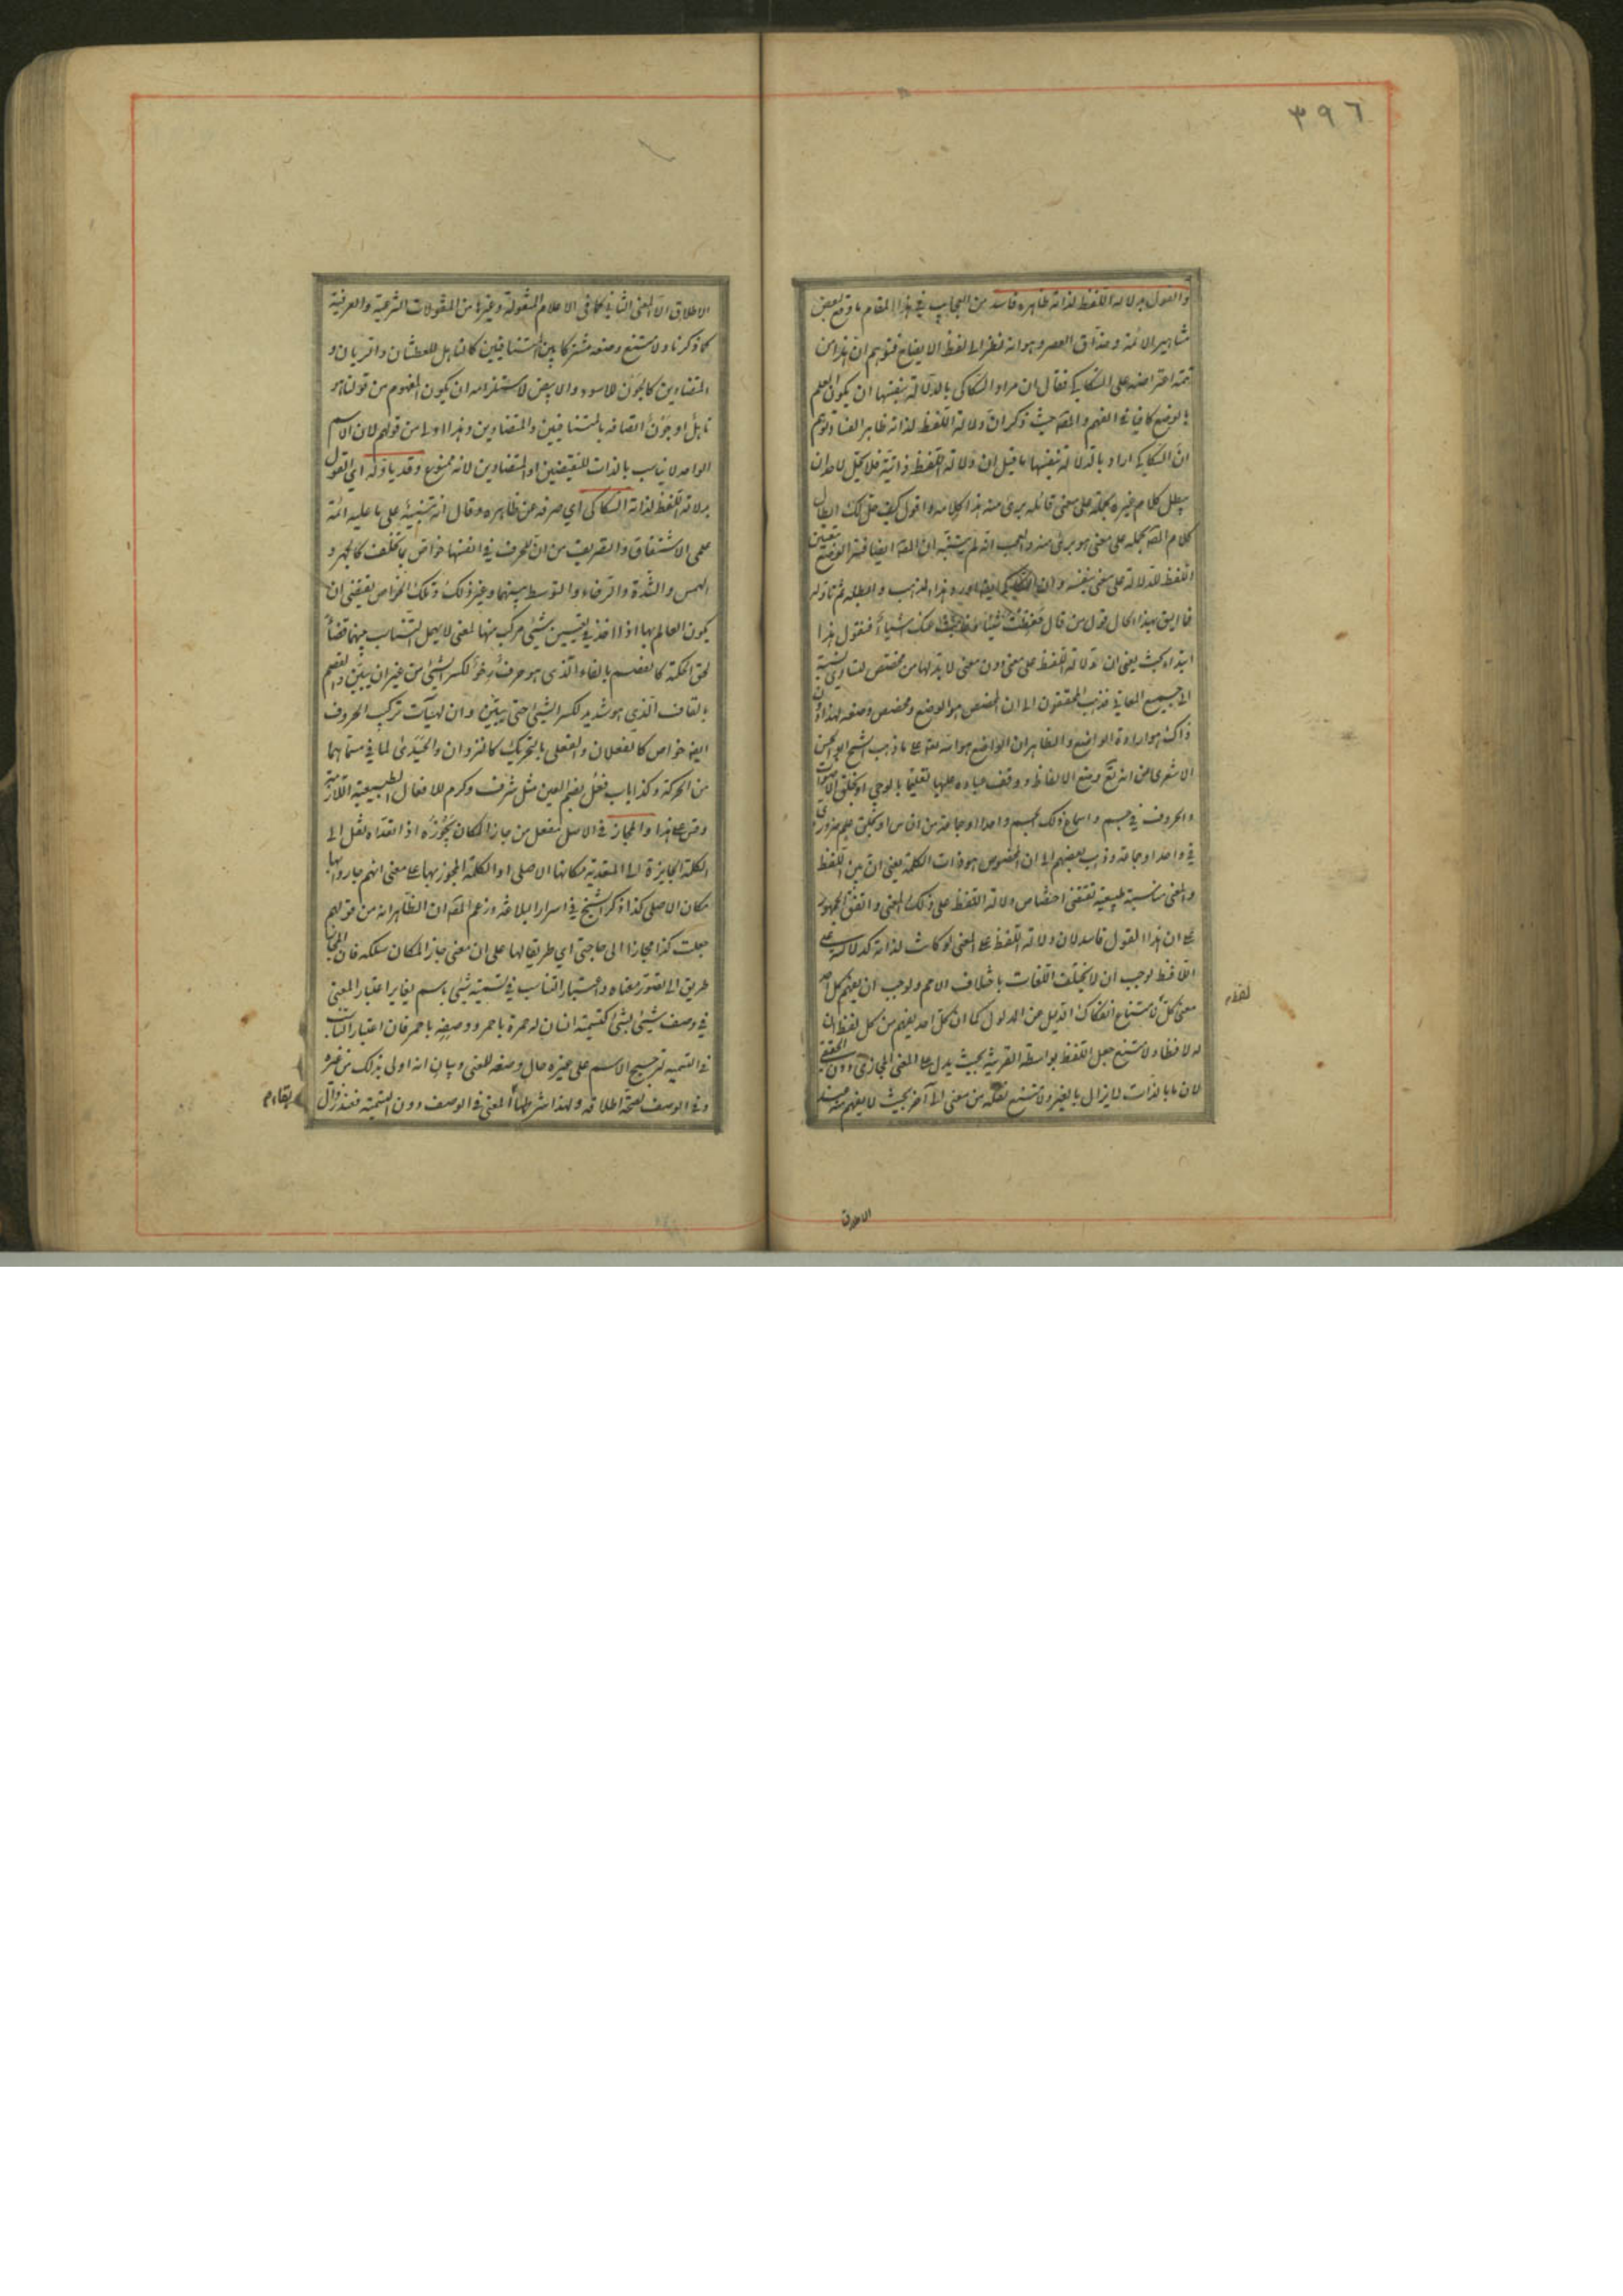 ٣٩٦
والقول بدلالة اللفظ لذاته ظاهره فاسد من العجايب في هذا المقام ما وقع لبعض
مشاهير الائمة وحذاق العصر وهو انه نظر الى لفظ الايضاح فتوهم ان هذا من
تتمة اعتراضه على السكاكي فقال ان مراد السكاكي بالدلالة بنفسها ان يكون العلم
بالوضع كافيا في الفهم والمص حيث ذكر ان دلالة اللفظ لذاته ظاهر الفساد توهم
ان السكاكي اراد بالدلالة بنفسها ما قيل ان دلالة اللفظ ذاتية فلا يحل لاحد ان
يبطل كلام غيره بحمله على معنى قائله برئ منه هذا كلامه واقول كيف حل لك ابطال
كلام المص بحمله على معنى هو برئ منه والعجب انه لم يتنبه ان المص ايضا فسر الوضع بتعيين
اللفظ للدلالة على معنى بنفسه وان السكاكي ايضا اورد هذا المذهب وابطله ثم تأوله
فما اليق بهذا الحال قول من قال حفظت شيئا وغابت عنك اشياء فنقول هذا
ابتداء بحث يعني ان دلالة اللفظ على معنى دون معنى لا بد لها من مخصص لتساوي نسبته
الى جميع المعاني فذهب المحققون الى ان المخصص هو الوضع ومخصص وضعه لهذا دون
ذاك هو ارادة الواضع والظاهر ان الواضع هو الله تعالى على ما ذهب الشيخ ابو الحسن
الاشعري من انه تع وضع الالفاظ ووقف عباده عليها تعليما بالوحي او بخلق الاصوات
والحروف في جسم واسماع ذلك الجسم واحدا او جماعة من الناس او بخلق علم ضروري
في واحد او جماعة وذهب بعضهم الى ان المخصص هو ذات الكلمة يعني ان بين اللفظ
والمعنى مناسبة طبيعية تقتضي اختصاص دلالة اللفظ على ذلك المعنى واتفق الجمهور
على ان هذا القول فاسد لان دلالة اللفظ على المعنى لو كانت لذاته كدلالته على
اللافظ لوجب ان لا تختلف اللغات باختلاف الامم ولوجب ان يفهم كل احد
معنى كل لامتناع انفكاك الدليل عن المدلول كما ان كل احد يفهم من كل لفظ ان
له لافظا ولامتنع جعل اللفظ بواسطة القرينة بحيث يدل على المعنى المجازي دون الحقيقي
لان ما بالذات لا يزال بالغير ولامتنع نقله من معنى الى آخر بحيث لا يفهم منه عند
لفظ
الاطلاق
الاطلاق الا المعنى الثاني كما في الاعلام المنقولة وغيرها من المنقولات الشرعية والعرفية
كما ذكرنا ولامتنع وضعه مشتركا بين المتنافيين كالناهل للعطشان والريان و
المتضادين كالجون للاسود والابيض لاستلزامه ان يكون المفهوم من قولنا هو
ناهل او جون اتصافه بالمتنافيين والمتضادين وهذا اولى من قولهم لان الاسم
الواحد لا يناسب بالذات للنقيضين او المتضادين لانه ممنوع وقد يأوله اي القول
بدلالة اللفظ لذاته السكاكي اي صرفه عن ظاهره وقال انه تنبيه على ما عليه ائمة
علمي الاشتقاق والتصريف من ان للحروف في انفسها خواص بها تختلف كالجهر و
الهمس والشدة والرخاء والتوسط بينهما وغير ذلك وتلك الخواص تقتضي ان
يكون العالم بها اذا اخذ في تعيين شيء مركب منها لمعنى لا يهمل التناسب بينهما قضاء
لحق الحكمة كالفصم بالفاء الذي هو حرف رخو لكسر الشيء من غير ان يبين والقصم
بالقاف الذي هو شديد لكسر الشيء حتى يبين وان لهيآت تركيب الحروف
ايض خواص كالفعلان والفعلى بالتحريك كالنزوان والحيدى لما في مسماهما
من الحركة وكذا باب فعل بضم العين مثل شرف وكرم للافعال الطبيعية اللازمة
وقس على هذا والمجاز في الاصل مفعل من جاز المكان يجوزه اذا تعداه نقل الى
الكلمة الجايزة اي المتعدية مكانها الاصلي او الكلمة المجوز بها على معنى انهم جازوا بها
مكان الاصلي كذا ذكر الشيخ في اسرار البلاغة وزعم المص ان الظاهر انه من قولهم
جعلت كذا مجازا الى حاجتي اي طريقا لها على ان معنى جاز المكان سلكه فان المجاز
طريق الى تصور معناه واعتبار التناسب في تسمية شيء باسم يغاير اعتبار المعنى
في وصف شيء بشيء كتسمية انسان له حمرة باحمر ووصفه باحمر فان اعتبار التناسب
في التسمية لترجيح الاسم على غيره حال وضعه للمعنى وبيان انه اولى بذلك من غيره
وفي الوصف لصحة اطلاقه ولهذا شرط بقاء المعنى في الوصف دون التسمية فعند زوال
بقاء م